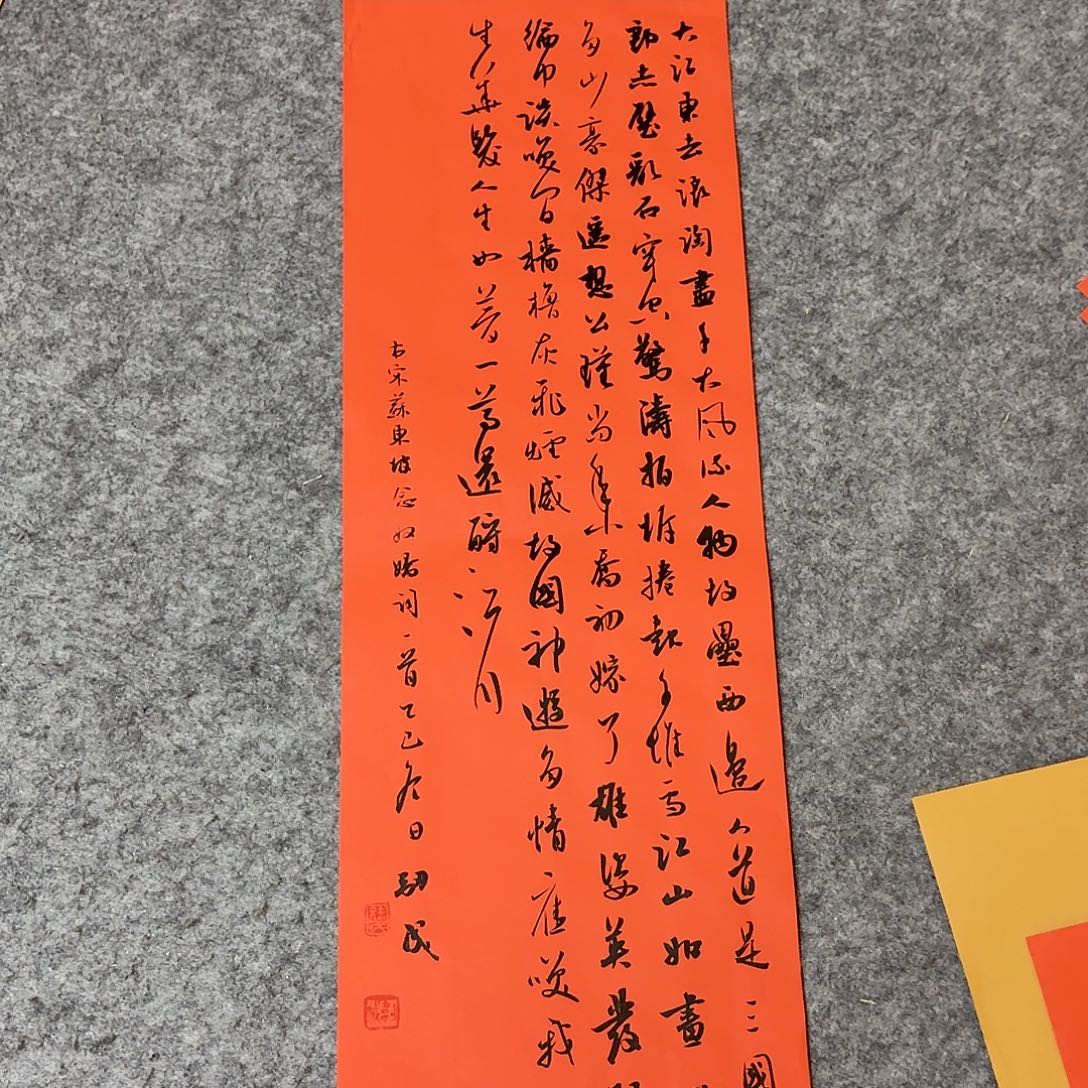 大江東去浪淘盡千古風流人物故壘西邊人道是三國
郎赤壁亂石穿空驚濤拍岸捲起千堆雪江山如畫
多少豪傑遙想公瑾當年小喬初嫁了雄姿英發
綸巾談笑間檣櫓灰飛煙滅故國神遊多情應笑我
生華髮人生如夢一尊還酹江月
右宋蘇東坡念奴嬌詞一首乙巳冬日